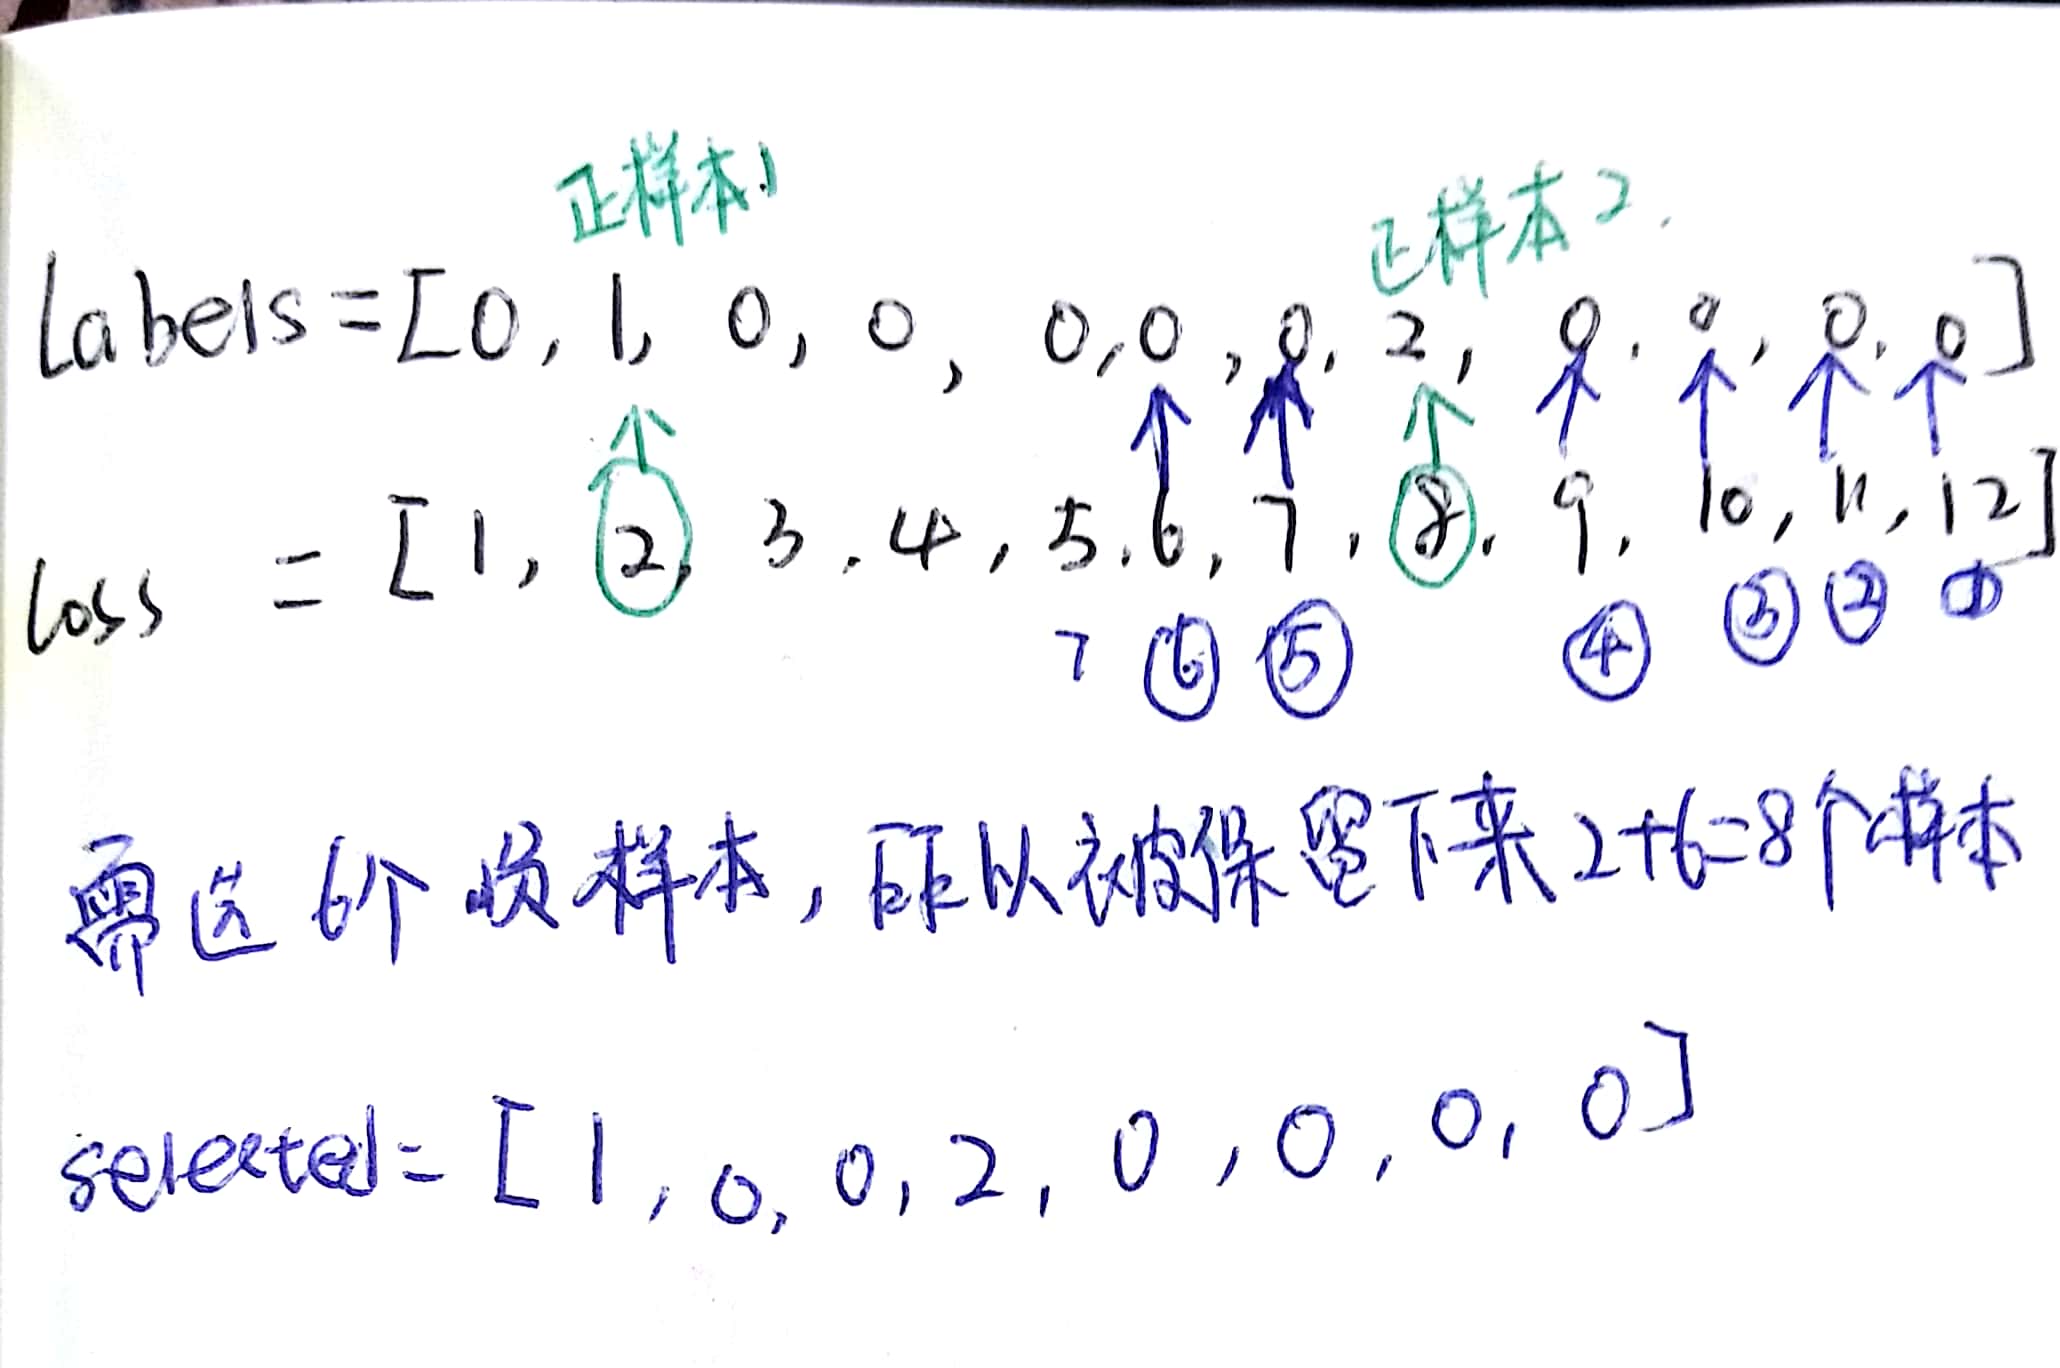 正样本1 正样本2.
labels=[0, 1, 0, 0, 0, 0, 0, 2, 0. 0, 0. 0]
loss = [1, 2, 3. 4, 5. 6, 7, 8. 9. 10, 11, 12]
7 ⑥ ⑤ ④ ③ ② ①
需选 6个 负样本, 所以被保留下来 2+6=8个样本
selected= [1, 0, 0, 2, 0, 0, 0, 0]